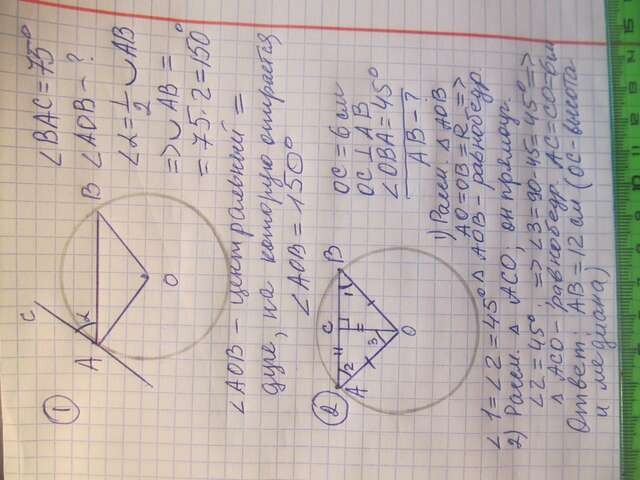 ①
C
A
B
α
O
∠BAC = 75°
∠AOB - ?
∠α = 1/2 ◡AB
=> ◡AB =
= 75·2 = 150°
∠AOB – центральный =
дуге, на которую опирается
∠AOB = 150°
②
A
C
B
2
1
3
O
OC = 6 см
OC ⊥ AB
∠OBA = 45°
AB - ?
1) Рассм. △ AOB
AO = OB = R =>
∠1 = ∠2 = 45° △ AOB - равнобедр.
2) Рассм. △ ACO; он прямоуг.
∠2 = 45° => ∠3 = 90-45 = 45° =>
△ ACO - равнобедр. AC = CO = 6 см
Ответ: AB = 12 см (OC - высота
и медиана)